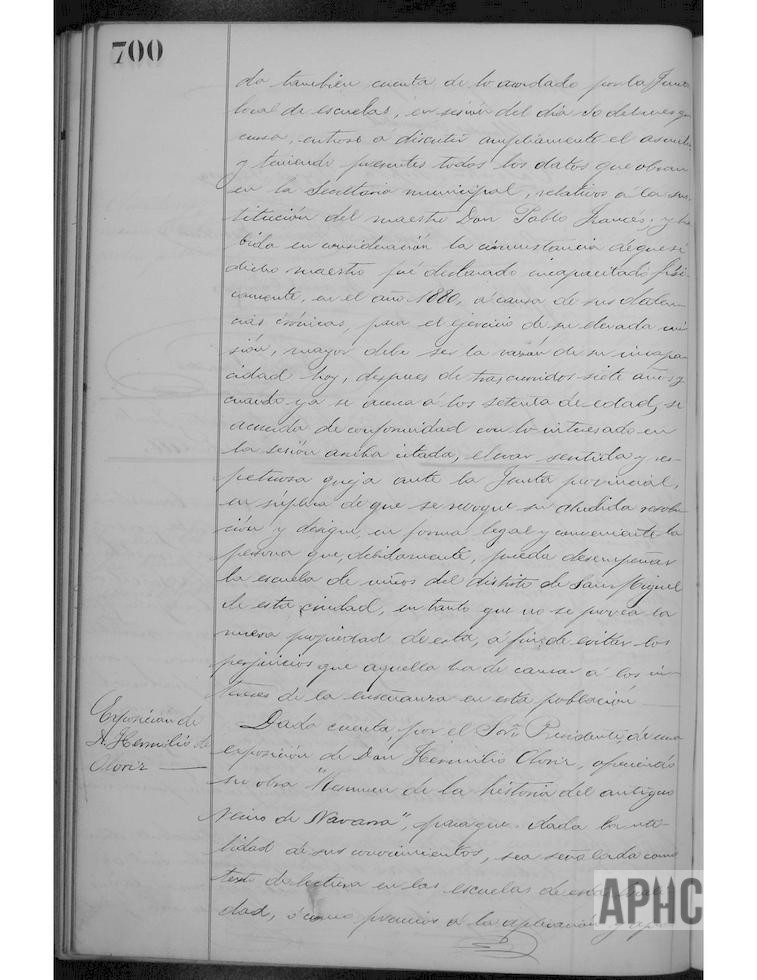 700
do tambien cuenta de lo acordado por la Junta
local de escuelas, en sesión del dia 30 del mes que
cursa, entrose á discutir ampliamente el asunto;
y teniendo presentes todos los datos que obran
en la Secretaria municipal, relativos á la sus-
titución del maestro Don Pablo Francés, y ha-
bida en consideración la circunstancia de que si
dicho maestro fué declarado incapacitado físi-
camente, en el año 1880, á causa de sus dolen-
cias crónicas, para el ejercicio de su elevada mi-
sión, mayor debe ser la razón de su incapa-
cidad hoy, despues de trascurridos siete años y
cuando ya se acerca á los setenta de edad, se
acuerda de conformidad con lo interesado en
la sesión arriba citada, elevar sentida y res-
petuosa queja ante la Junta provincial,
en súplica de que se revoque su aludida resolu-
ción y designe, en forma legal y conveniente la
persona que, debidamente, pueda desempeñar
la escuela de niños del distrito de San Miguel
de esta ciudad, en tanto que no se provea la
nueva propiedad de esta, á fin de evitar los
perjuicios que aquella ha de causar á los in-
tereses de la enseñanza en esta población
Exposicion de
D. Hermilio de
Oloriz
Dada cuenta por el Sor. Presidente, de una
exposición de Don Hermilio Oloriz, ofreciendo
su obra "Resumen de la historia del antiguo
Reino de Navarra", para que dada la uti-
lidad de sus conocimientos, sea señalada como
texto de lectura en las escuelas de esta
dad, ó como premios á la aplicación y
APHC